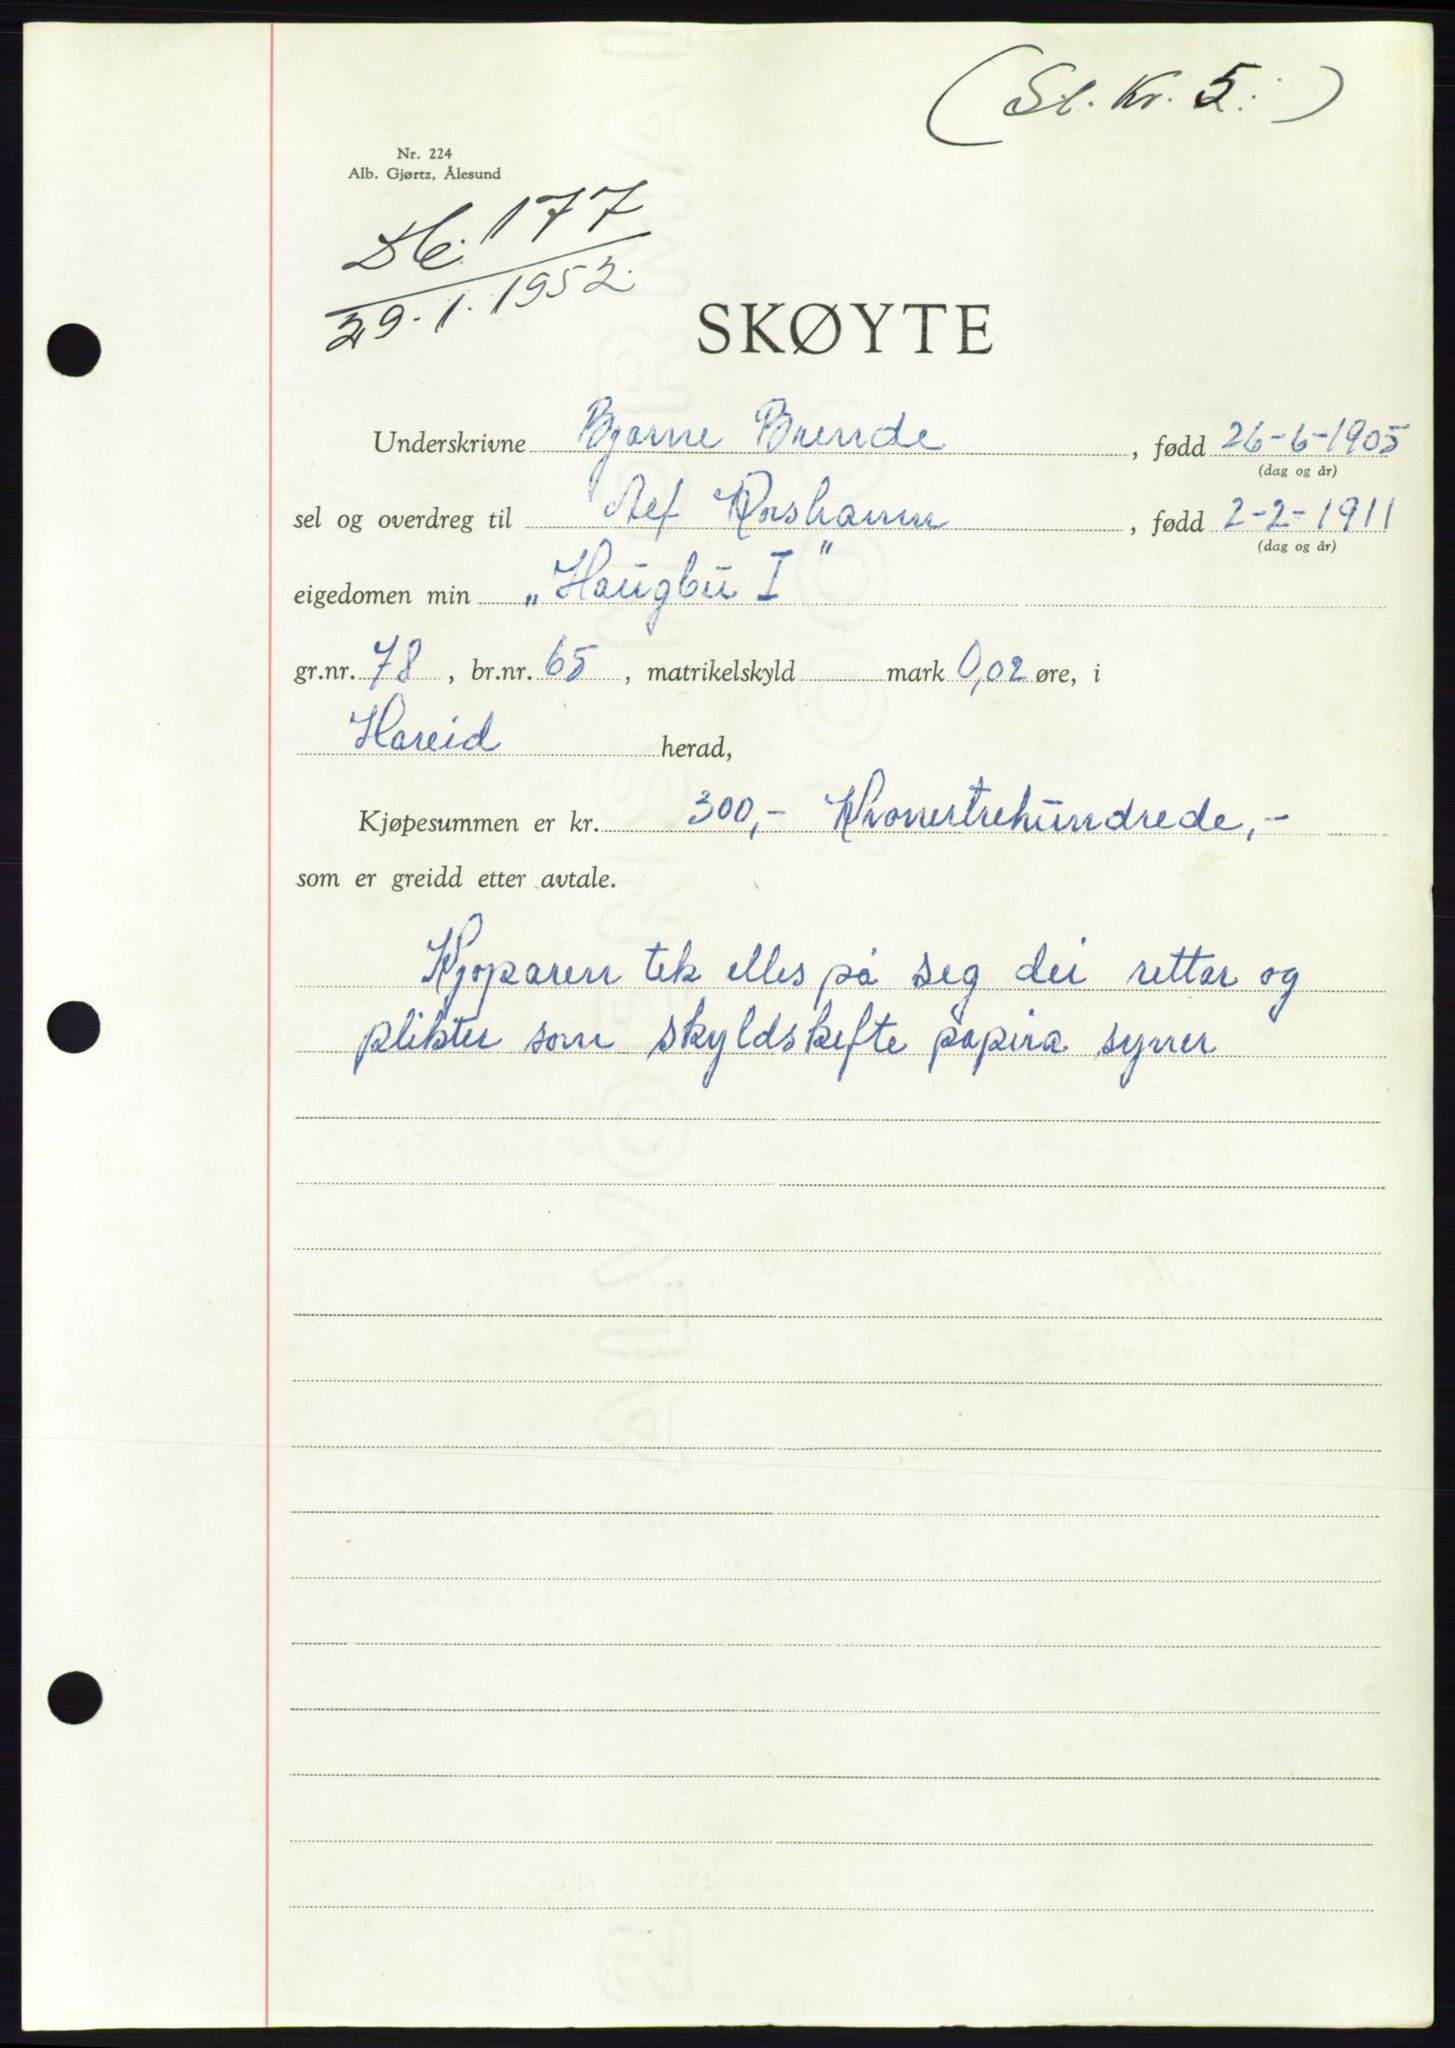 (St. Kr. 5.)
Nr. 224
Alb. Gjørtz, Ålesund
177
29.1.1952
SKØYTE
Underskrivne Bjarne Brende, fødd 26-6-1905
(dag og år)
sel og overdreg til Alf Korshamn, fødd 2-2-1911
(dag og år)
eigedomen min „Haugbu I"
gr.nr. 78, br.nr. 65, matrikelskyld mark 0,02 øre, i
Hareid herad,
Kjøpesummen er kr. 300,- Kronertrehundrede,-
som er greidd etter avtale.
Kjøparen tek elles på seg dei rettar og
plikter som skyldskifte papira syner